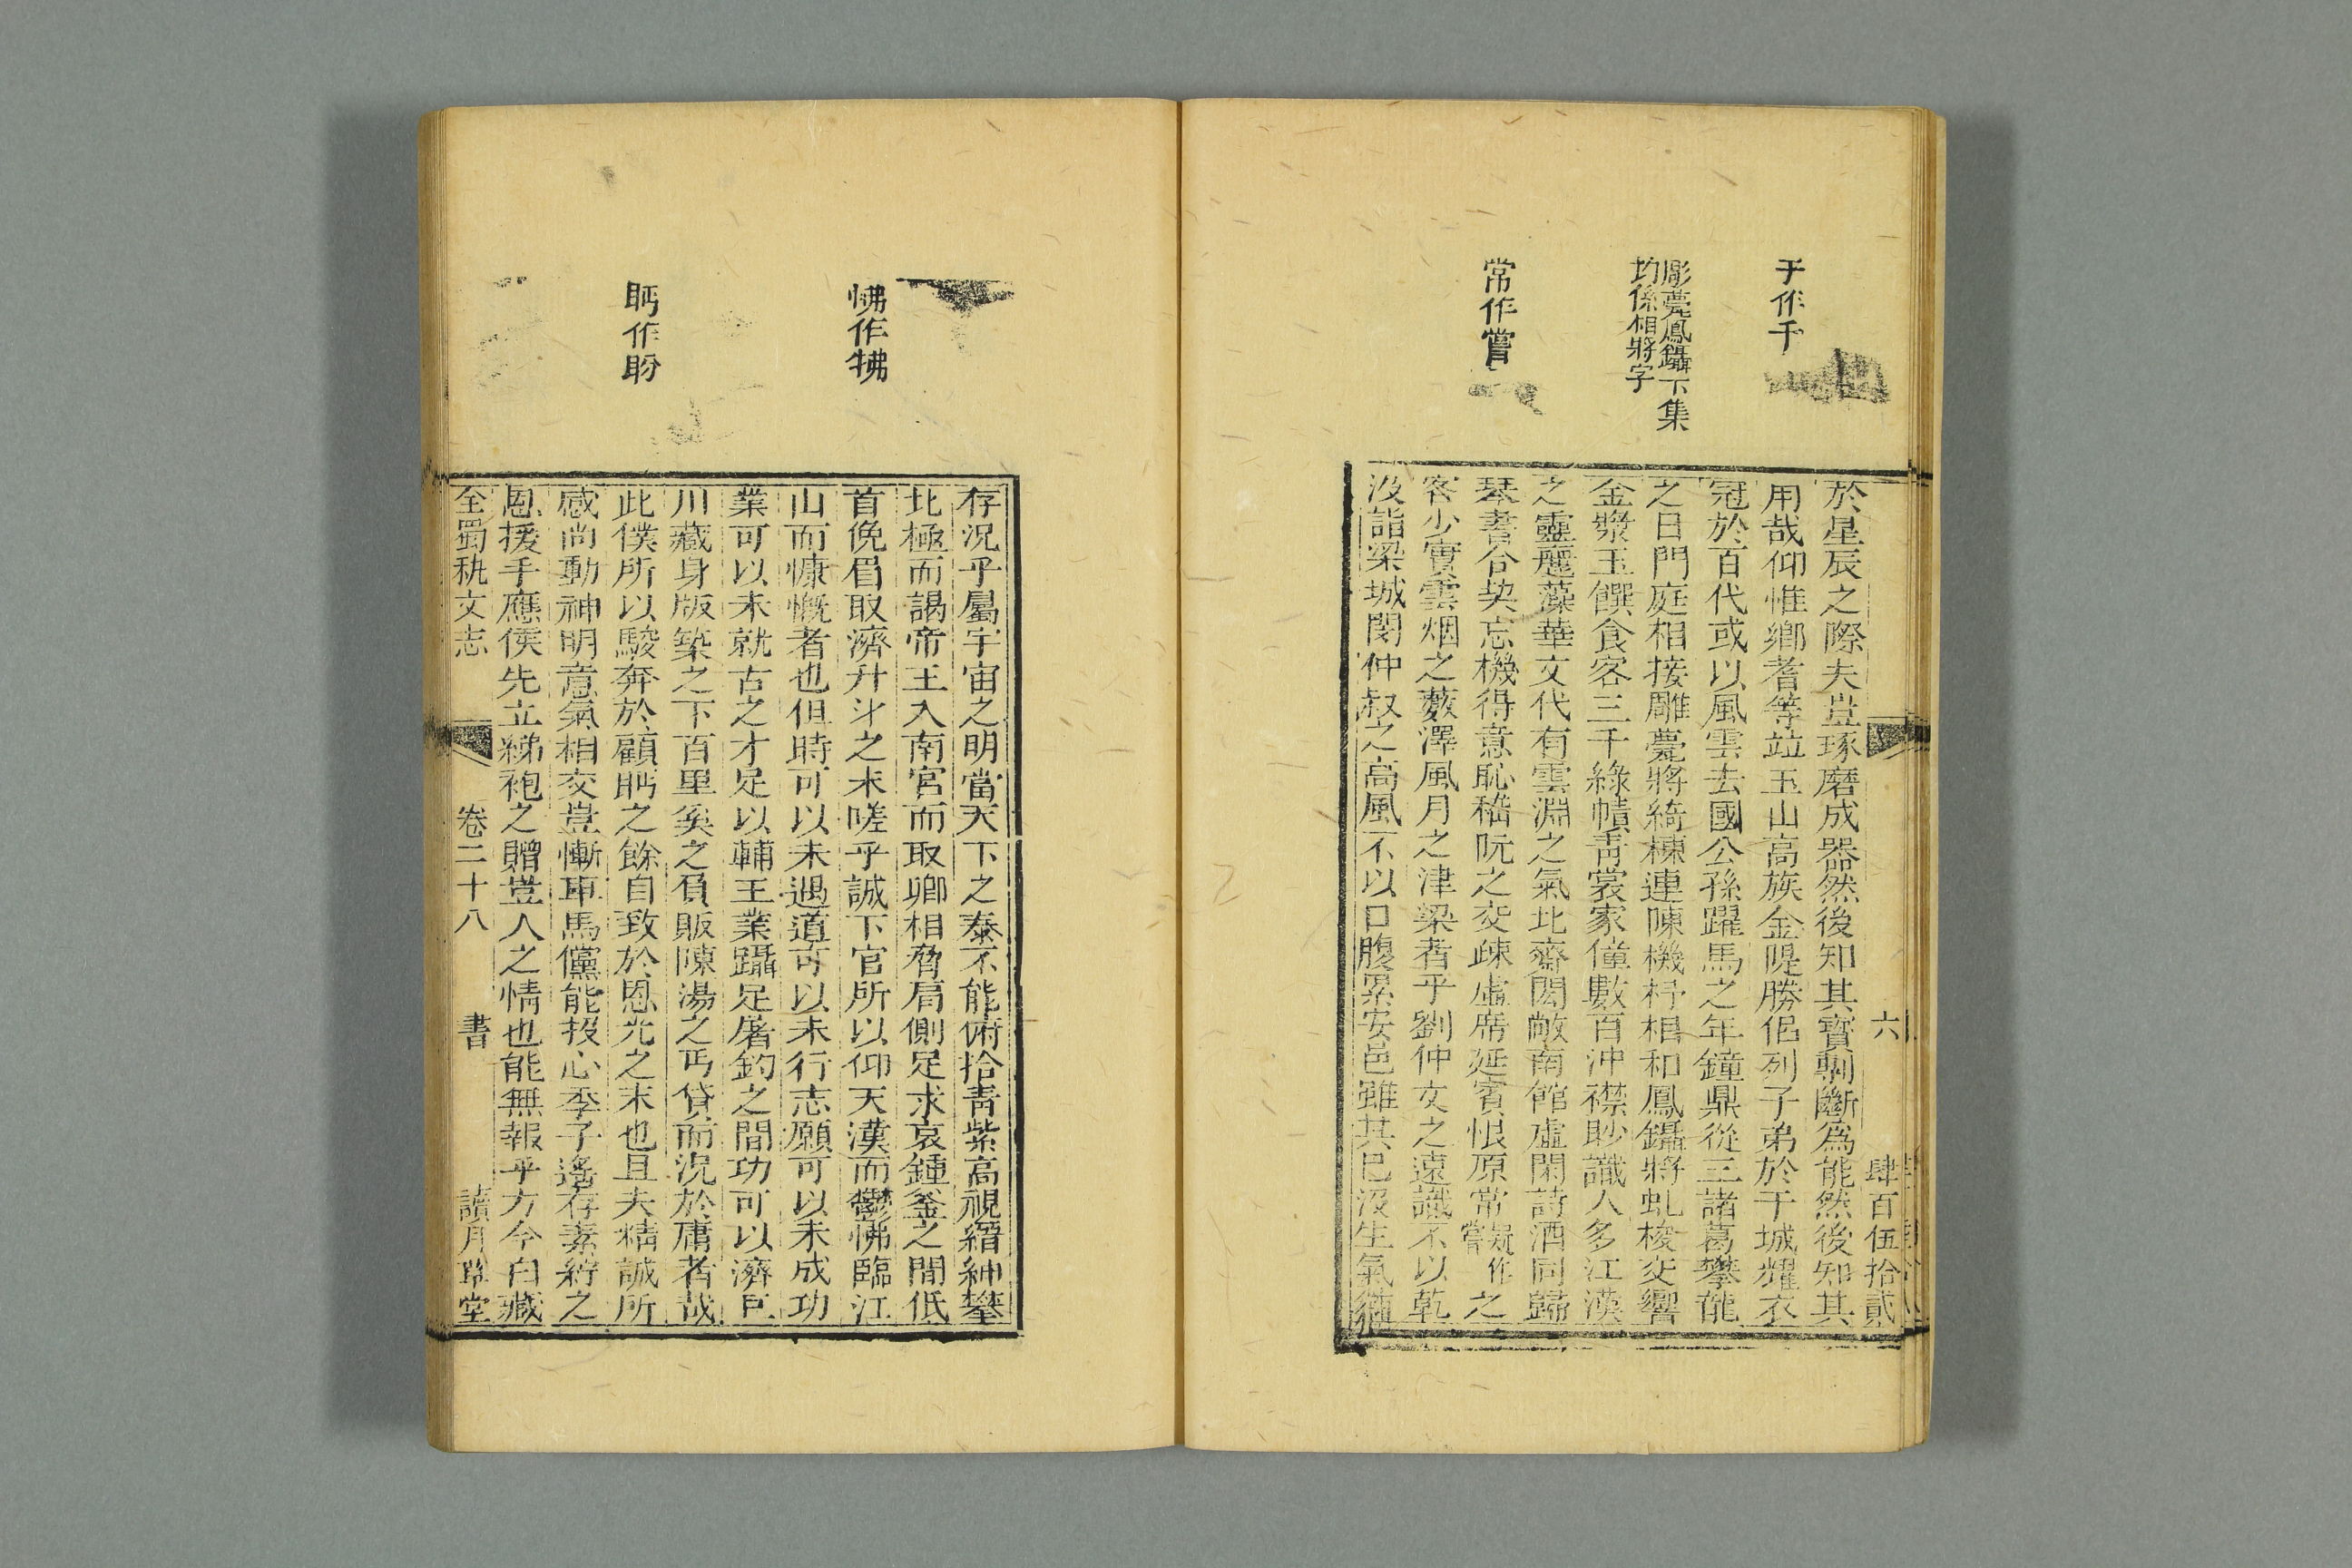 于作干
彫甍鳳鑷下集
均係相將字
常作嘗
六
肆百伍拾貳
於星辰之際夫豈琢磨成器然後知其寳剸斷爲能然後知其
用哉仰惟鄉耆等竝玉山高族金隄勝侶列子弟於干城燿衣
冠於百代或以風雲去國公孫躍馬之年鐘鼎從王諸葛攀龍
之日門庭相接雕甍將綺棟連陳機杼相和鳳鑷將虬梭交響
金漿玉饌食客三千綠幘靑裳家僮數百沖襟眇識人多江漢
之靈麗藻華文代有雲淵之氣北齋閎敞南館虛閑詩酒同歸
琴書合契忘機得意恥嵇阮之交疎虛席延賓恨原常疑作嘗之
客少實雲烟之藪澤風月之津梁者乎劉仲文之遠識不以乾
沒詣梁城閔仲叔之高風不以口腹累安邑雖其已沒生氣猶
怫作拂
眄作盼
存況乎屬宇宙之明當天下之泰不能俯拾靑紫高視縉紳攀
北極而謁帝王入南宮而取卿相脅肩側足求哀鍾釜之間低
首俛眉取濟升斗之末嗟乎誠下官所以仰天漢而鬱怫臨江
山而慷慨者也但時可以未遇道可以未行志願可以未成功
業可以未就古之才足以輔王業躡足屠釣之間功可以濟巨
川藏身版築之下百里奚之負販陳湯之丐貸而況於庸者哉
此僕所以駿奔於顧眄之餘自致於恩光之末也且夫精誠所
感尚動神明意氣相交豈慚車馬儻能投心季子遙存素紵之
恩援手應侯先立綈袍之贈豈人之情也能無報乎方今白藏
全蜀秇文志
卷二十八
書
讀月草堂